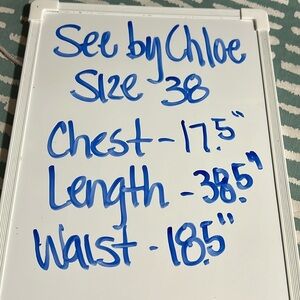 See by Chloe
Size 38
Chest - 17.5"
Length - 38.5"
Waist - 18.5"